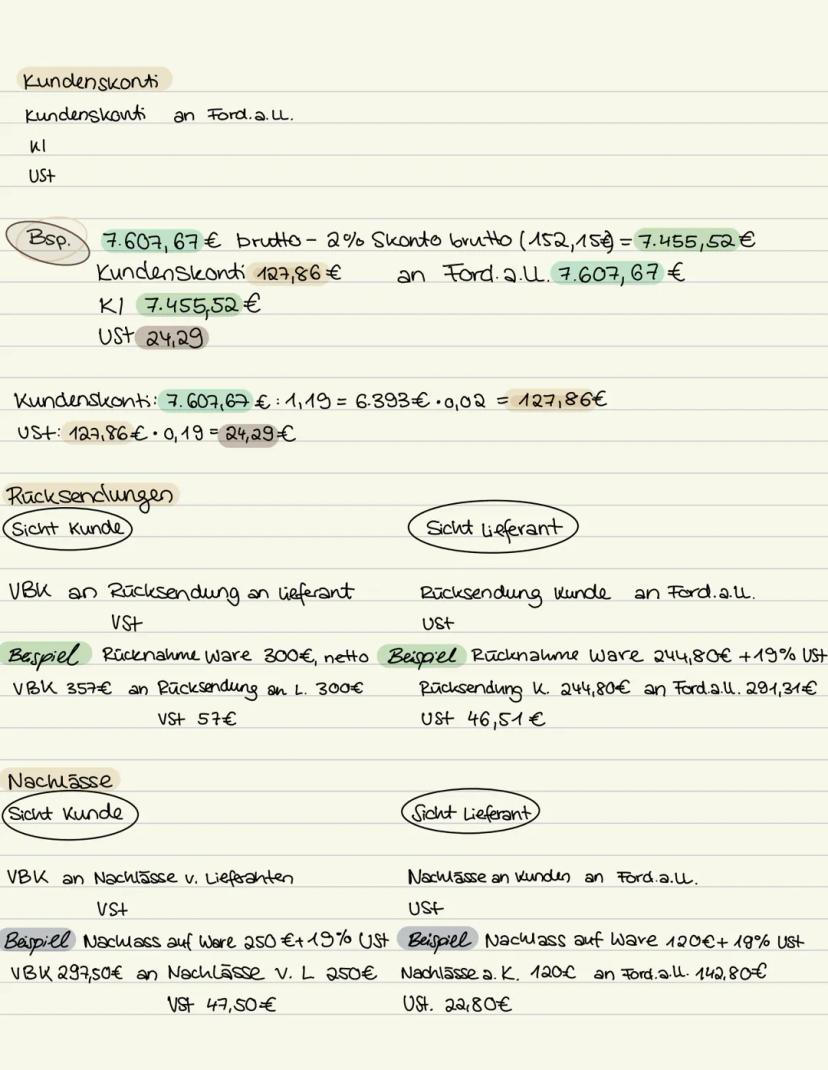 Kundenskonti
Kundenskonti an Ford.a.LL.
KI
USt
Bsp. 7.607,67 € brutto - 2% Skonto brutto (152,15€) = 7.455,52 €
Kundenskonti 127,86 € an Ford.a.LL. 7.607,67 €
KI 7.455,52 €
USt 24,29
Kundenskonti: 7.607,67 € : 1,19 = 6.393€ · 0,02 = 127,86€
USt: 127,86€ · 0,19 = 24,29 €
Rücksendungen
Sicht Kunde Sicht Lieferant
VBK an Rücksendung an Lieferant Rücksendung Kunde an Ford.a.LL.
VSt USt
Beispiel Rücknahme Ware 300€, netto Beispiel Rücknahme Ware 244,80€ +19% USt
VBK 357€ an Rücksendung an L. 300€ Rücksendung K. 244,80€ an Ford.a.LL. 291,31€
VSt 57€ USt 46,51 €
Nachlässe
Sicht Kunde Sicht Lieferant
VBK an Nachlässe v. Lieferanten Nachlässe an Kunden an Ford.a.LL.
VSt USt
Beispiel Nachlass auf Ware 250 €+19% USt Beispiel Nachlass auf Ware 120€+ 19% USt
VBK 297,50€ an Nachlässe v. L 250€ Nachlässe a. K. 120€ an Ford.a.LL. 142,80€
VSt 47,50€ USt. 22,80€